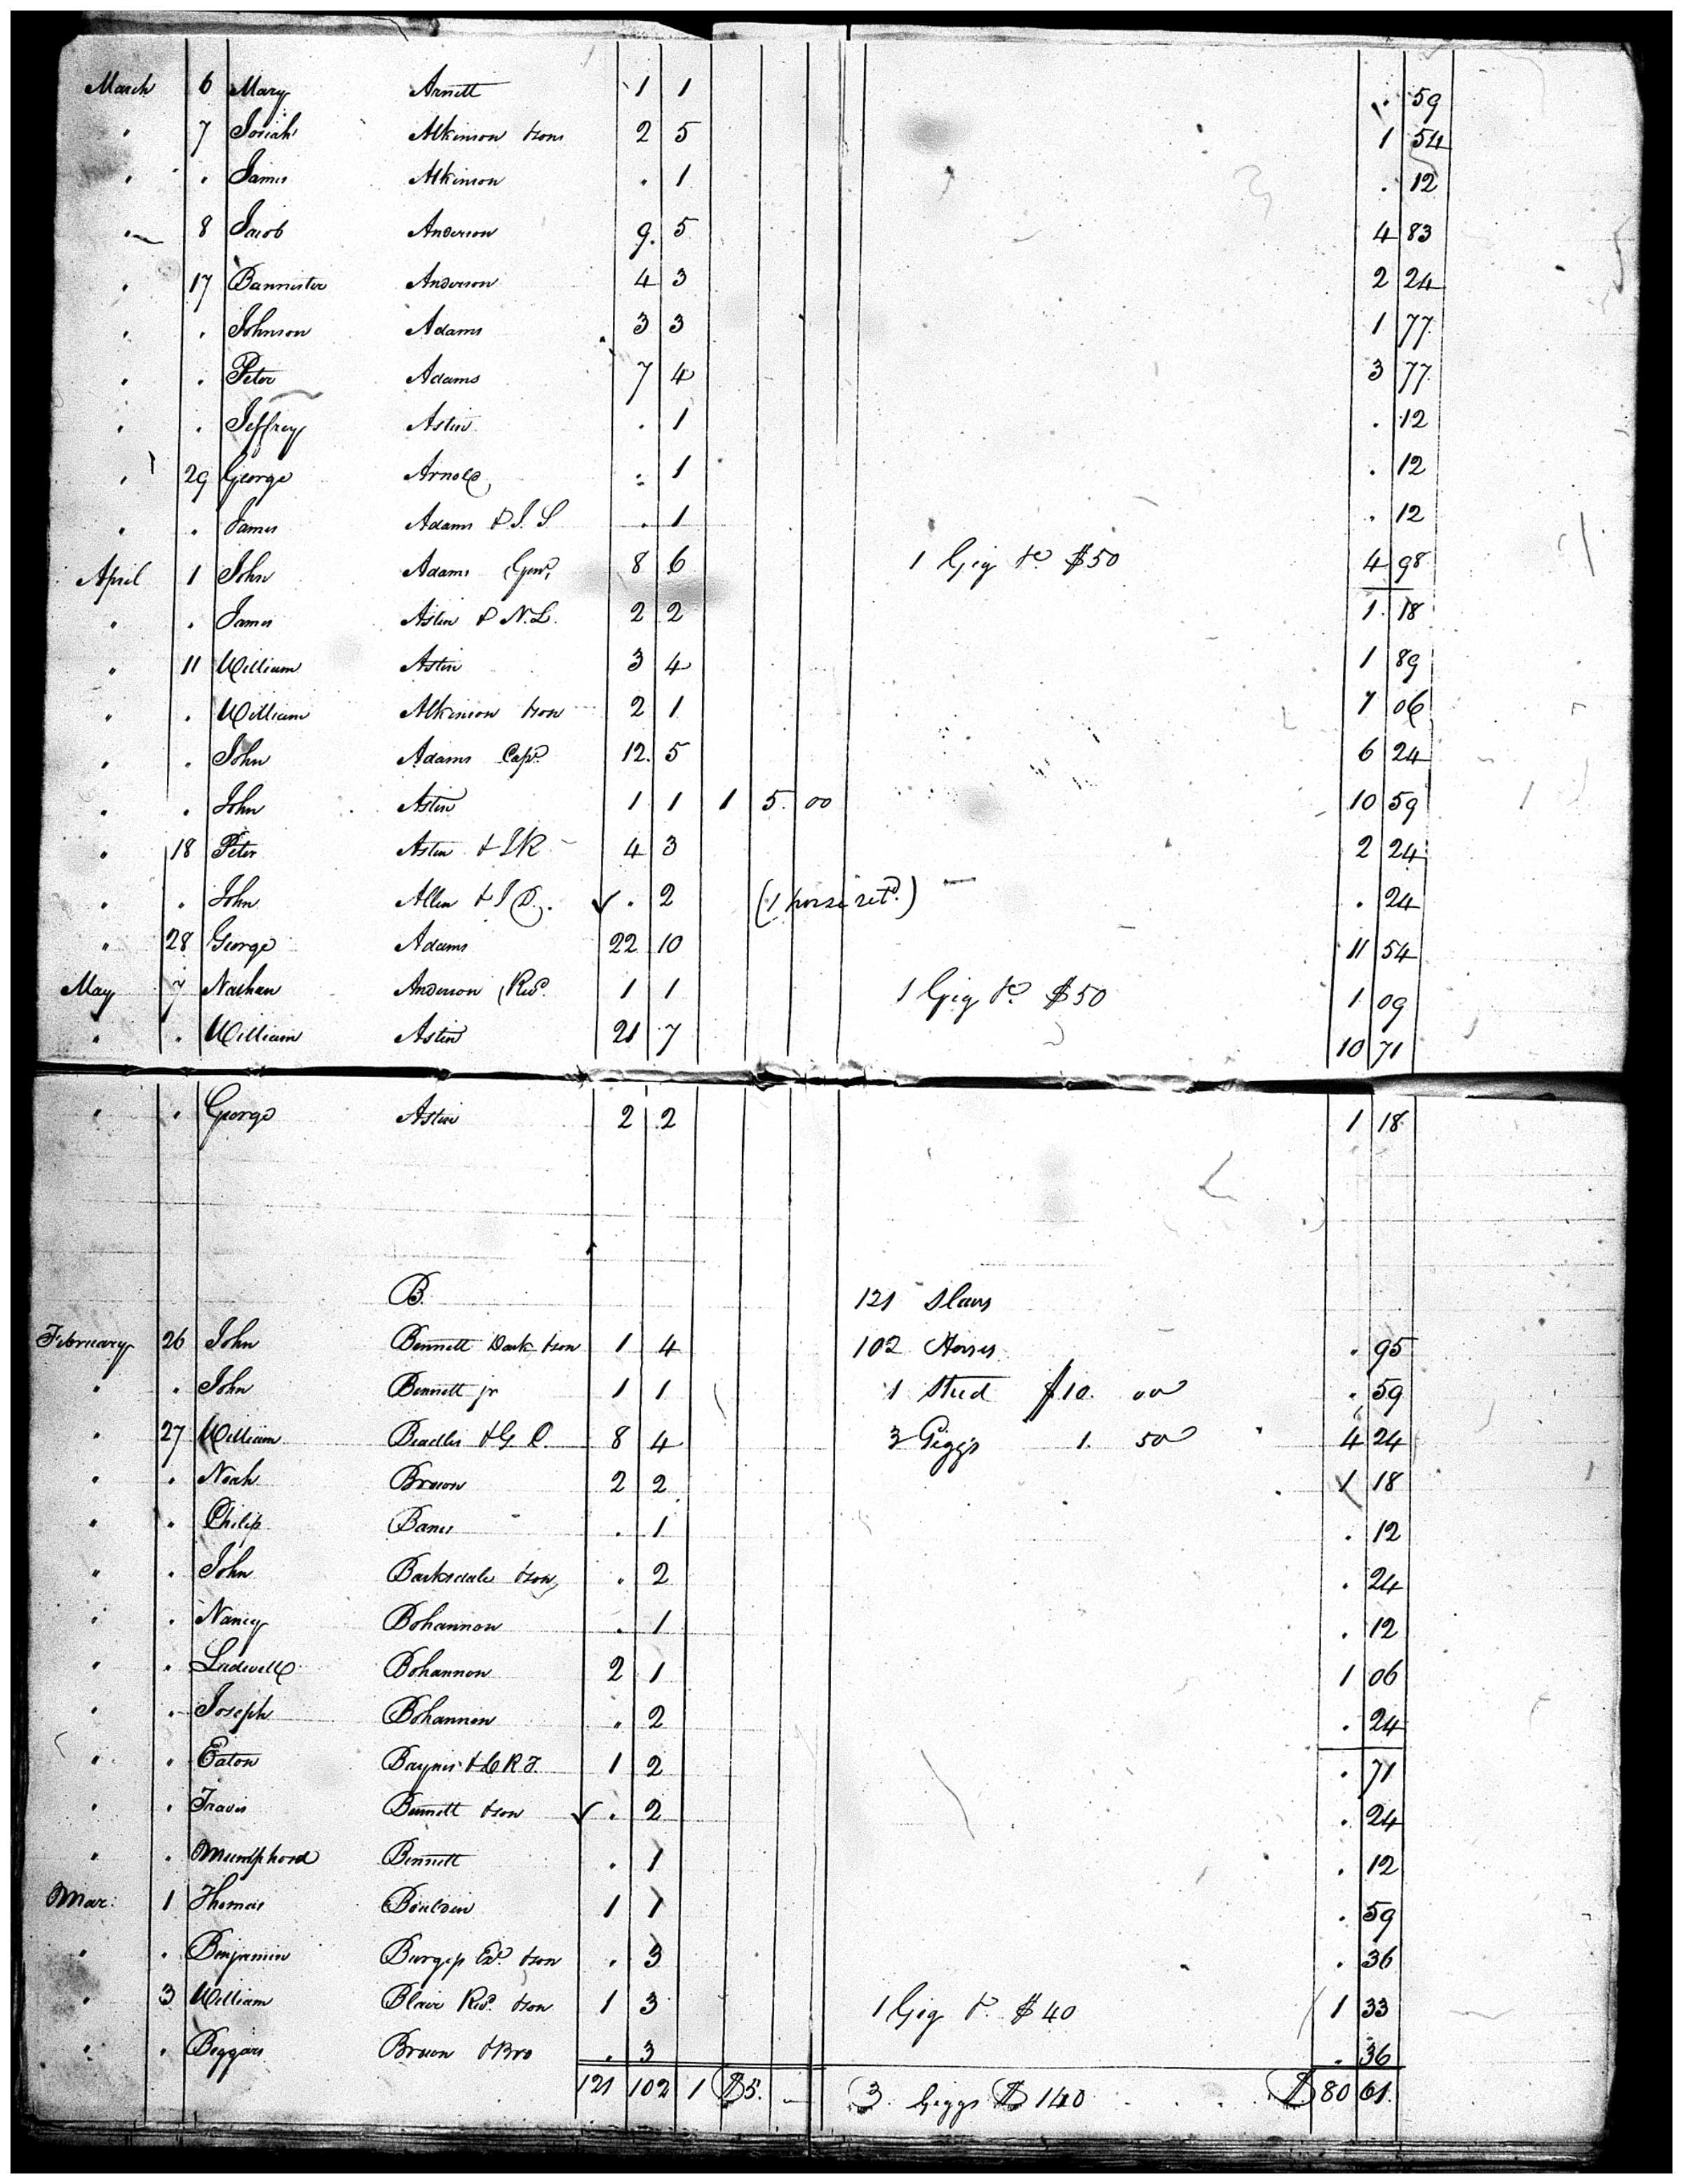 March 6 Mary Arnett 1 1 . 59
" 7 Josiah Atkinson &son 2 5 1 54
" . James Atkinson . 1 . 12
" 8 Jacob Anderson 9. 5 4 83
" 17 Bannister Anderson 4 3 2 24
" . Johnson Adams 3 3 1 77
" . Peter Adams 7 4 3 77
" . Jeffrey Astin . 1 . 12
" 29 George Arnold . 1 . 12
" . James Adams & J. S . 1 . 12
April 1 John Adams 8 6 1 Gig &c $50 4 98
" . James Astin & N. L. 2 2 1. 18
" 11 William Astin 3 4 1 89
" . William Atkinson &son 2 1 1 06
" . John Adams Capt. 12. 5 6 24
" . John Astin 1 1 1 5. 00 10 59
" 18 Peter Astin & 4 3 2 24
" . John Allen & J D. . 2 (1 horse retd.) . 24
" 28 George Adams 22 10 11 54
May 7 Nathan Anderson (Revd. 1 1 1 Gig &c. $50 1 09
" . William Astin 21 7 10 71
" . George Astin 2 2 1 18
B. 121 Slaves
February 26 John Bennett Dark &son 1 4 102 Horses . 95
" . John Bennett jr 1 1 1 Stud $10. 00 . 59
" 27 William Beadles &G 8 4 3 Giggs 1. 50 4 24
" . Noah Brown 2 2 1 18
" . Philip Banes . 1 . 12
" . John Barksdale &son . 2 . 24
" . Nancy Bohannon . 1 . 12
" . Ledwell Bohannon 2 1 1 06
" . Joseph Bohannon . 2 . 24
" . Eaton Baynes & 1 2 . 71
" . Travis Bennett &son . 2 . 24
" . Mumphord Bennett . 1 . 12
Mar: 1 Thomas Bouldin 1 1 . 59
" . Benjamin Burgess &son . 3 . 36
" 3 William Blair Revd. &son 1 3 1 Gig &c. $40 1 33
" . Beggars Brown &Bro . 3 . 36
121 102 1 $5. 3 Giggs $140 $80 61.